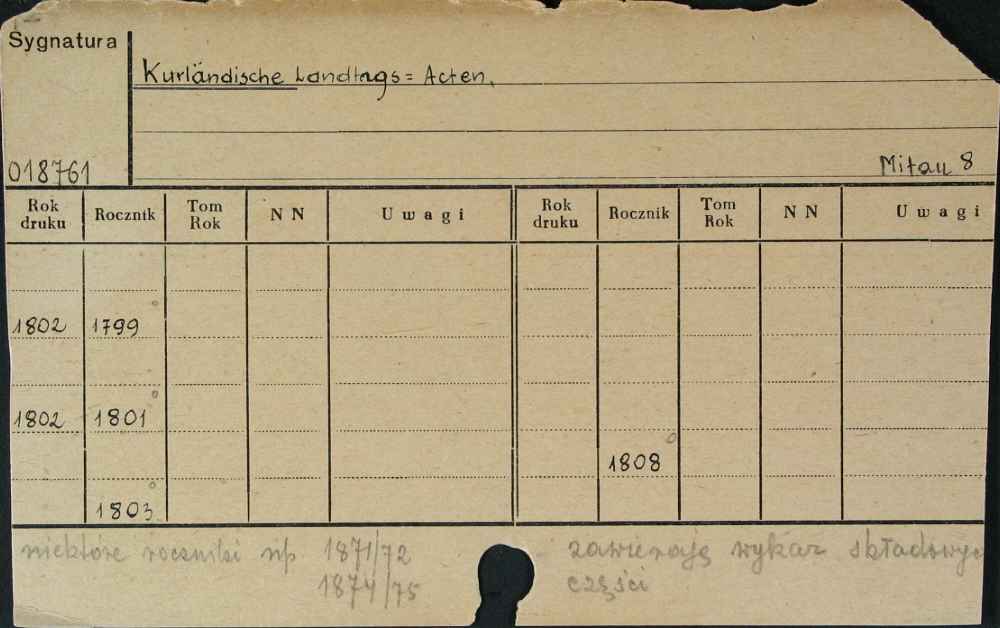 Sygnatura
Kurländische Landtags= Acten.
018761
Mitau 8
Rok druku Rocznik Tom Rok NN Uwagi Rok druku Rocznik Tom Rok NN Uwagi
1802 1799
1802 1801
1808
1803
niektóre roczniki np 1871/72 zawierają wykaz składowyc
1874/75 części